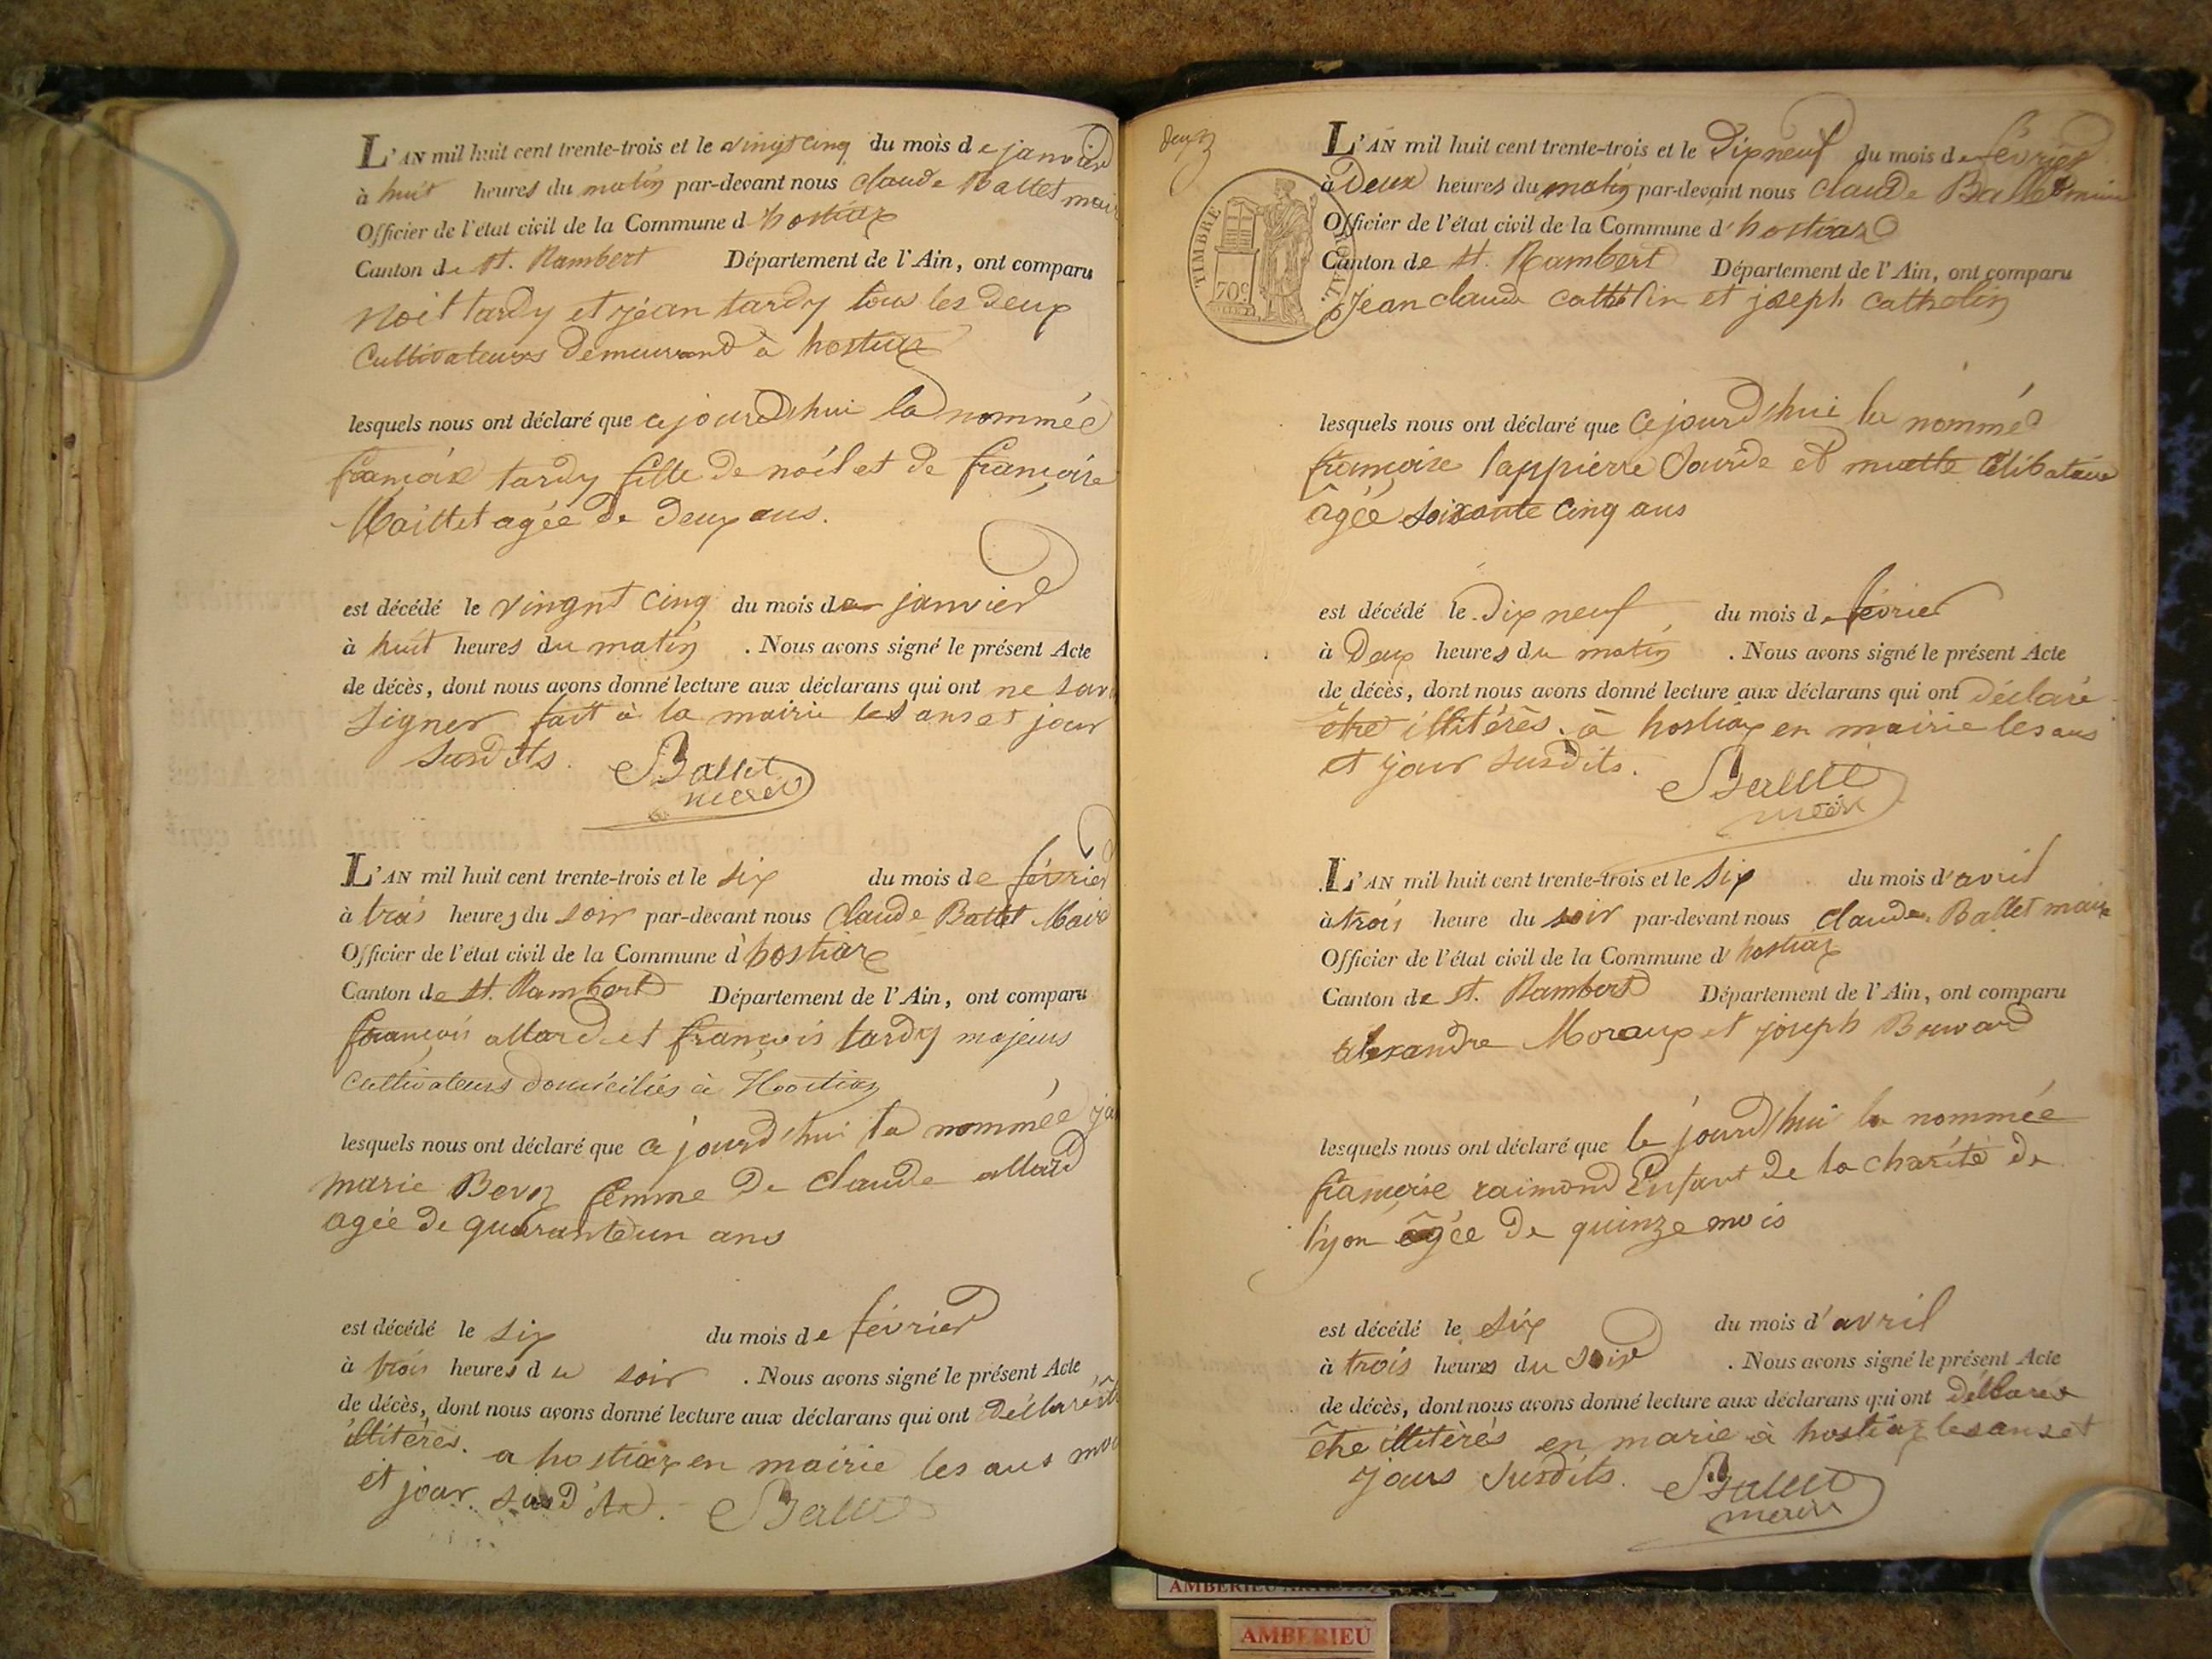 L'AN mil huit cent trente-trois et le vingt cinq du mois de janvier
à huit heures du matin par-devant nous claude Ballet maire
Officier de l'état civil de la Commune d'hostiaz
Canton de St. Rambert Département de l'Ain, ont comparu
Noël tardy et jean tardy tous les deux
Cultivateurs demeurand à hostiaz
lesquels nous ont déclaré que ce jourd'hui la nommée
françoise tardy fille de noël et de françoise
Maillet agée de deux ans.
est décédé le vingnt cinq du mois de janvier
à huit heures du matin . Nous avons signé le présent Acte
de décès, dont nous avons donné lecture aux déclarans qui ont ne
signer fait à la mairie les ans et jour
susdits. Ballet
maire
L'AN mil huit cent trente-trois et le six du mois de février
à trois heures du soir par-devant nous Claude Ballet Maire
Officier de l'état civil de la Commune d'hostiaz
Canton de St. Rambert Département de l'Ain, ont comparu
françois allard et françois tardy majeurs
cultivateurs domiciliés à Hostiaz
lesquels nous ont déclaré que ce jourd'hui la nommée
marie Bevoz femme de claude allard
agée de quarante un ans
est décédé le six du mois de février
à trois heures du soir . Nous avons signé le présent Acte
de décès, dont nous avons donné lecture aux déclarans qui ont déclaré
illitérés. a hostiaz en mairie les ans
et jour susdits. Ballet
deux
TIMBRE ROYAL
70c
L'AN mil huit cent trente-trois et le Dix neuf du mois de février
à Deux heures du matin par-devant nous Claude Ballet maire
Officier de l'état civil de la Commune d'hostiaz
Canton de St. Rambert Département de l'Ain, ont comparu
Jean claude cathelin et joseph cathelin
lesquels nous ont déclaré que Ce jourd'hui la nommée
françoise lappierre sourde et muette célibataire
âgée soixante cinq ans
est décédé le Dix neuf du mois de février
à Deux heures du matin . Nous avons signé le présent Acte
de décès, dont nous avons donné lecture aux déclarans qui ont Déclaré
être illitérés. à hostiaz en mairie les ans
et jour susdits. Ballet
maire
L'AN mil huit cent trente-trois et le six du mois d'avril
à trois heure du soir par-devant nous claude Ballet maire
Officier de l'état civil de la Commune d'hostiaz
Canton de St. Rambert Département de l'Ain, ont comparu
alexandre Moraux et joseph Buward
lesquels nous ont déclaré que le jourd'hui la nommée
françoise raimond Enfant de la charité de
lyon âgée de quinze mois
est décédé le six du mois d'avril
à trois heures du soir . Nous avons signé le présent Acte
de décès, dont nous avons donné lecture aux déclarans qui ont déclarés
être illitèrés en marie à hostiaz les ans et
jours susdits. Ballet
maire
AMBERIEU
AMBERIEU